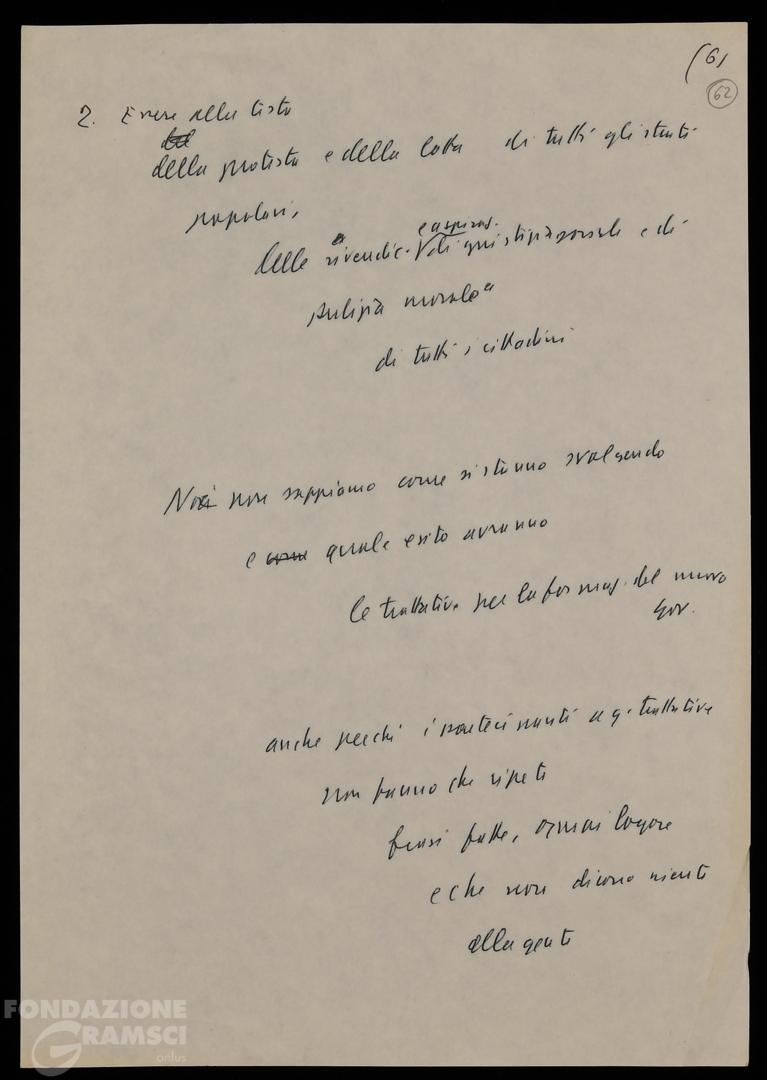 (6)
62
2. Essere alla testa
del
della protesta e della lotta di tutti gli strati
popolari,
e aspiraz.
delle rivendic. di giustizia sociale e di
pulizia morale"
di tutti i cittadini
Noi non sappiamo come si stanno svolgendo
e come quale esito avranno
le trattative per la formaz. del nuovo
gov.
anche perché i partecipanti a q. trattative
non fanno che ripete
frasi fatte, ormai logore
e che non dicono niente
alla gente
FONDAZIONE
GRAMSCI
onlus